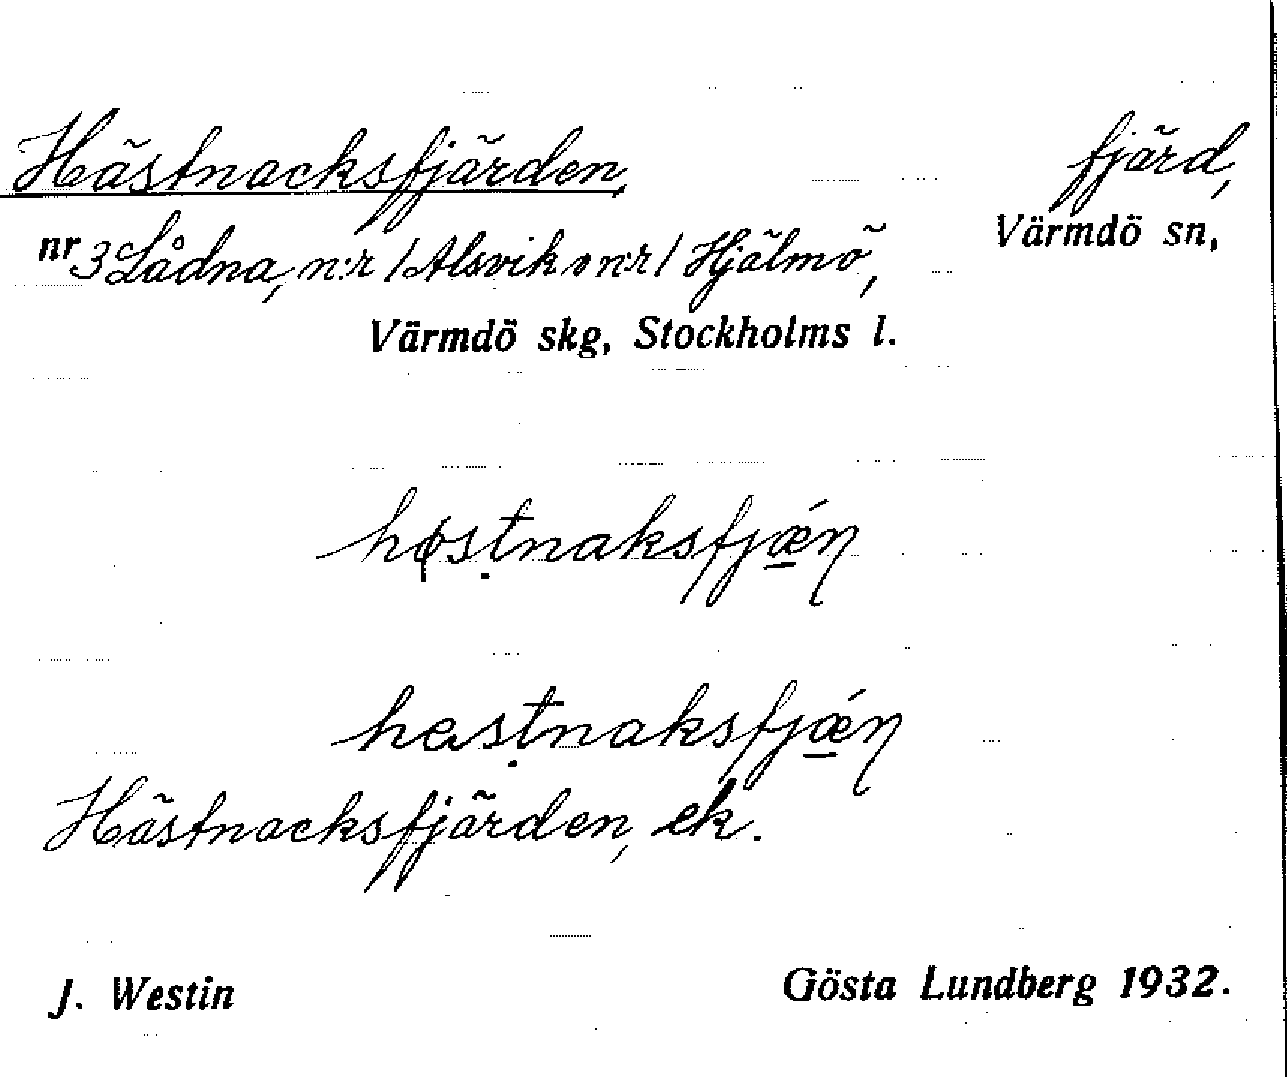 Hästnacksfjärden, fjärd,
nr 3 Lådna, n:r 1 Alsvik o n:r 1 Hjälmö, Värmdö sn,
Värmdö skg, Stockholms l.
hɵstnaksfjǽ̱ɳ
hestnaksfjǽ̱ɳ
Hästnacksfjärden, ek.
J. Westin Gösta Lundberg 1932.